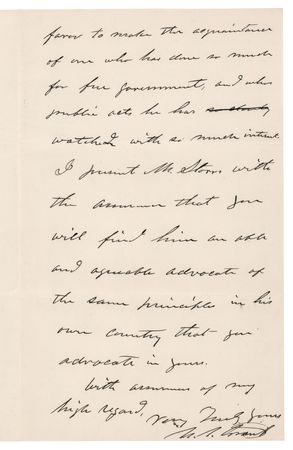 favor to make the acquaintance
of one who has done so much
for free government, and who
public acts he has so closely
watched with so much interest.
I present Mr. Storrs with
the assurance that you
will find him an able
and agreeable advocate of
the same principles in his
own country that you
advocate in yours.
With assurances of my
high regard,
Very Truly yours
U. S. Grant